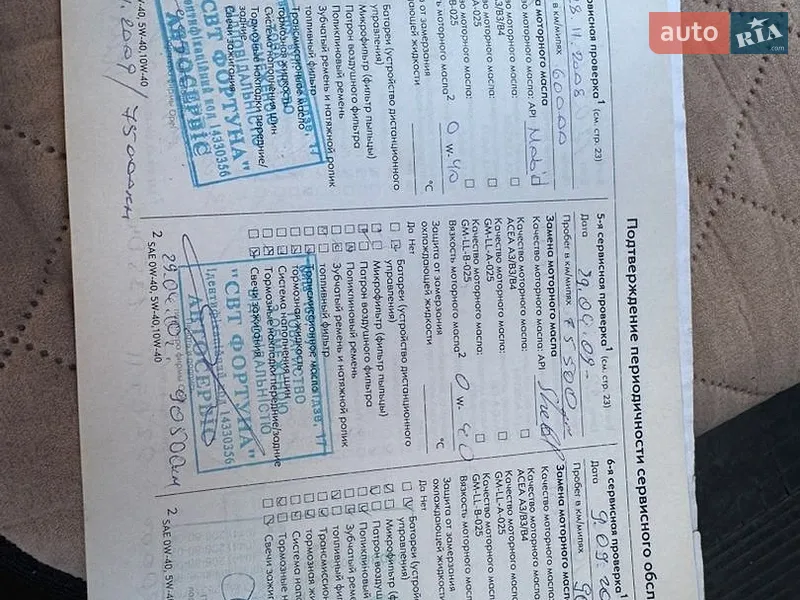 auto RIA
Подтверждение периодичности сервисного обсл
сервисная проверка¹ (см. стр. 23)
8.11.2008
в км/милях 60000
на моторного масла
тво моторного масла: API Mobil
тво моторного масла:
A3/B3/B4
тво моторного масла:
A-025
тво моторного масла:
B-025
ть моторного масла² 0 W- 40
от замерзания
ающей жидкости °C
Батареи (устройство дистанционного
управления)
Микрофильтр (фильтр пыльцы)
Патрон воздушного фильтра
Поликлиновый ремень
Зубчатый ремень и натяжной ролик
топливный фильтр
Трансмиссионное масло
тормозная жидкость
Система наполнения шин
Тормозные накладки передние/
задние
Свечи зажигания
"СВТ ФОРТУНА"
Ідентифікаційний код 14330356
АВТОСЕРВІС
0W-40, 5W-40, 10W-40
2009 / 75000км
5-я сервисная проверка¹ (см. стр. 23)
Дата 29.04.09
Пробег в км/милях 75500
Замена моторного масла
Качество моторного масла: API Shell
Качество моторного масла:
ACEA A3/B3/B4
Качество моторного масла:
GM-LL-A-025
Качество моторного масла:
GM-LL-B-025
Вязкость моторного масла² 0 W- 40
Защита от замерзания
охлаждающей жидкости °C
Да Нет
Батареи (устройство дистанционного
управления)
Микрофильтр (фильтр пыльцы)
Патрон воздушного фильтра
Поликлиновый ремень
Зубчатый ремень и натяжной ролик
топливный фильтр
Трансмиссионное масло
тормозная жидкость
Система наполнения шин
Тормозные накладки передние/задние
Свечи зажигания
"СВТ ФОРТУНА"
Ідентифікаційний код 14330356
АВТОСЕРВІС
90500км
2 SAE 0W-40, 5W-40, 10W-40
6-я сервисная проверка¹
Дата 9.09.20
Пробег в км/милях
Замена моторного масла
Качество моторного масла
Качество моторного масла
ACEA A3/B3/B4
Качество моторного масла
GM-LL-A-025
Качество моторного масла
GM-LL-B-025
Вязкость моторного масла
Защита от замерзания
охлаждающей жидкости
Да Нет
Батареи (устрой
управления)
Микрофильтр (ф
Патрон воздуш
Поликлиновый
Зубчатый реме
топливный фил
Трансмиссион
тормозная жи
Система напо
Тормозные на
Свечи зажиг
2 SAE 0W-40, 5W-4